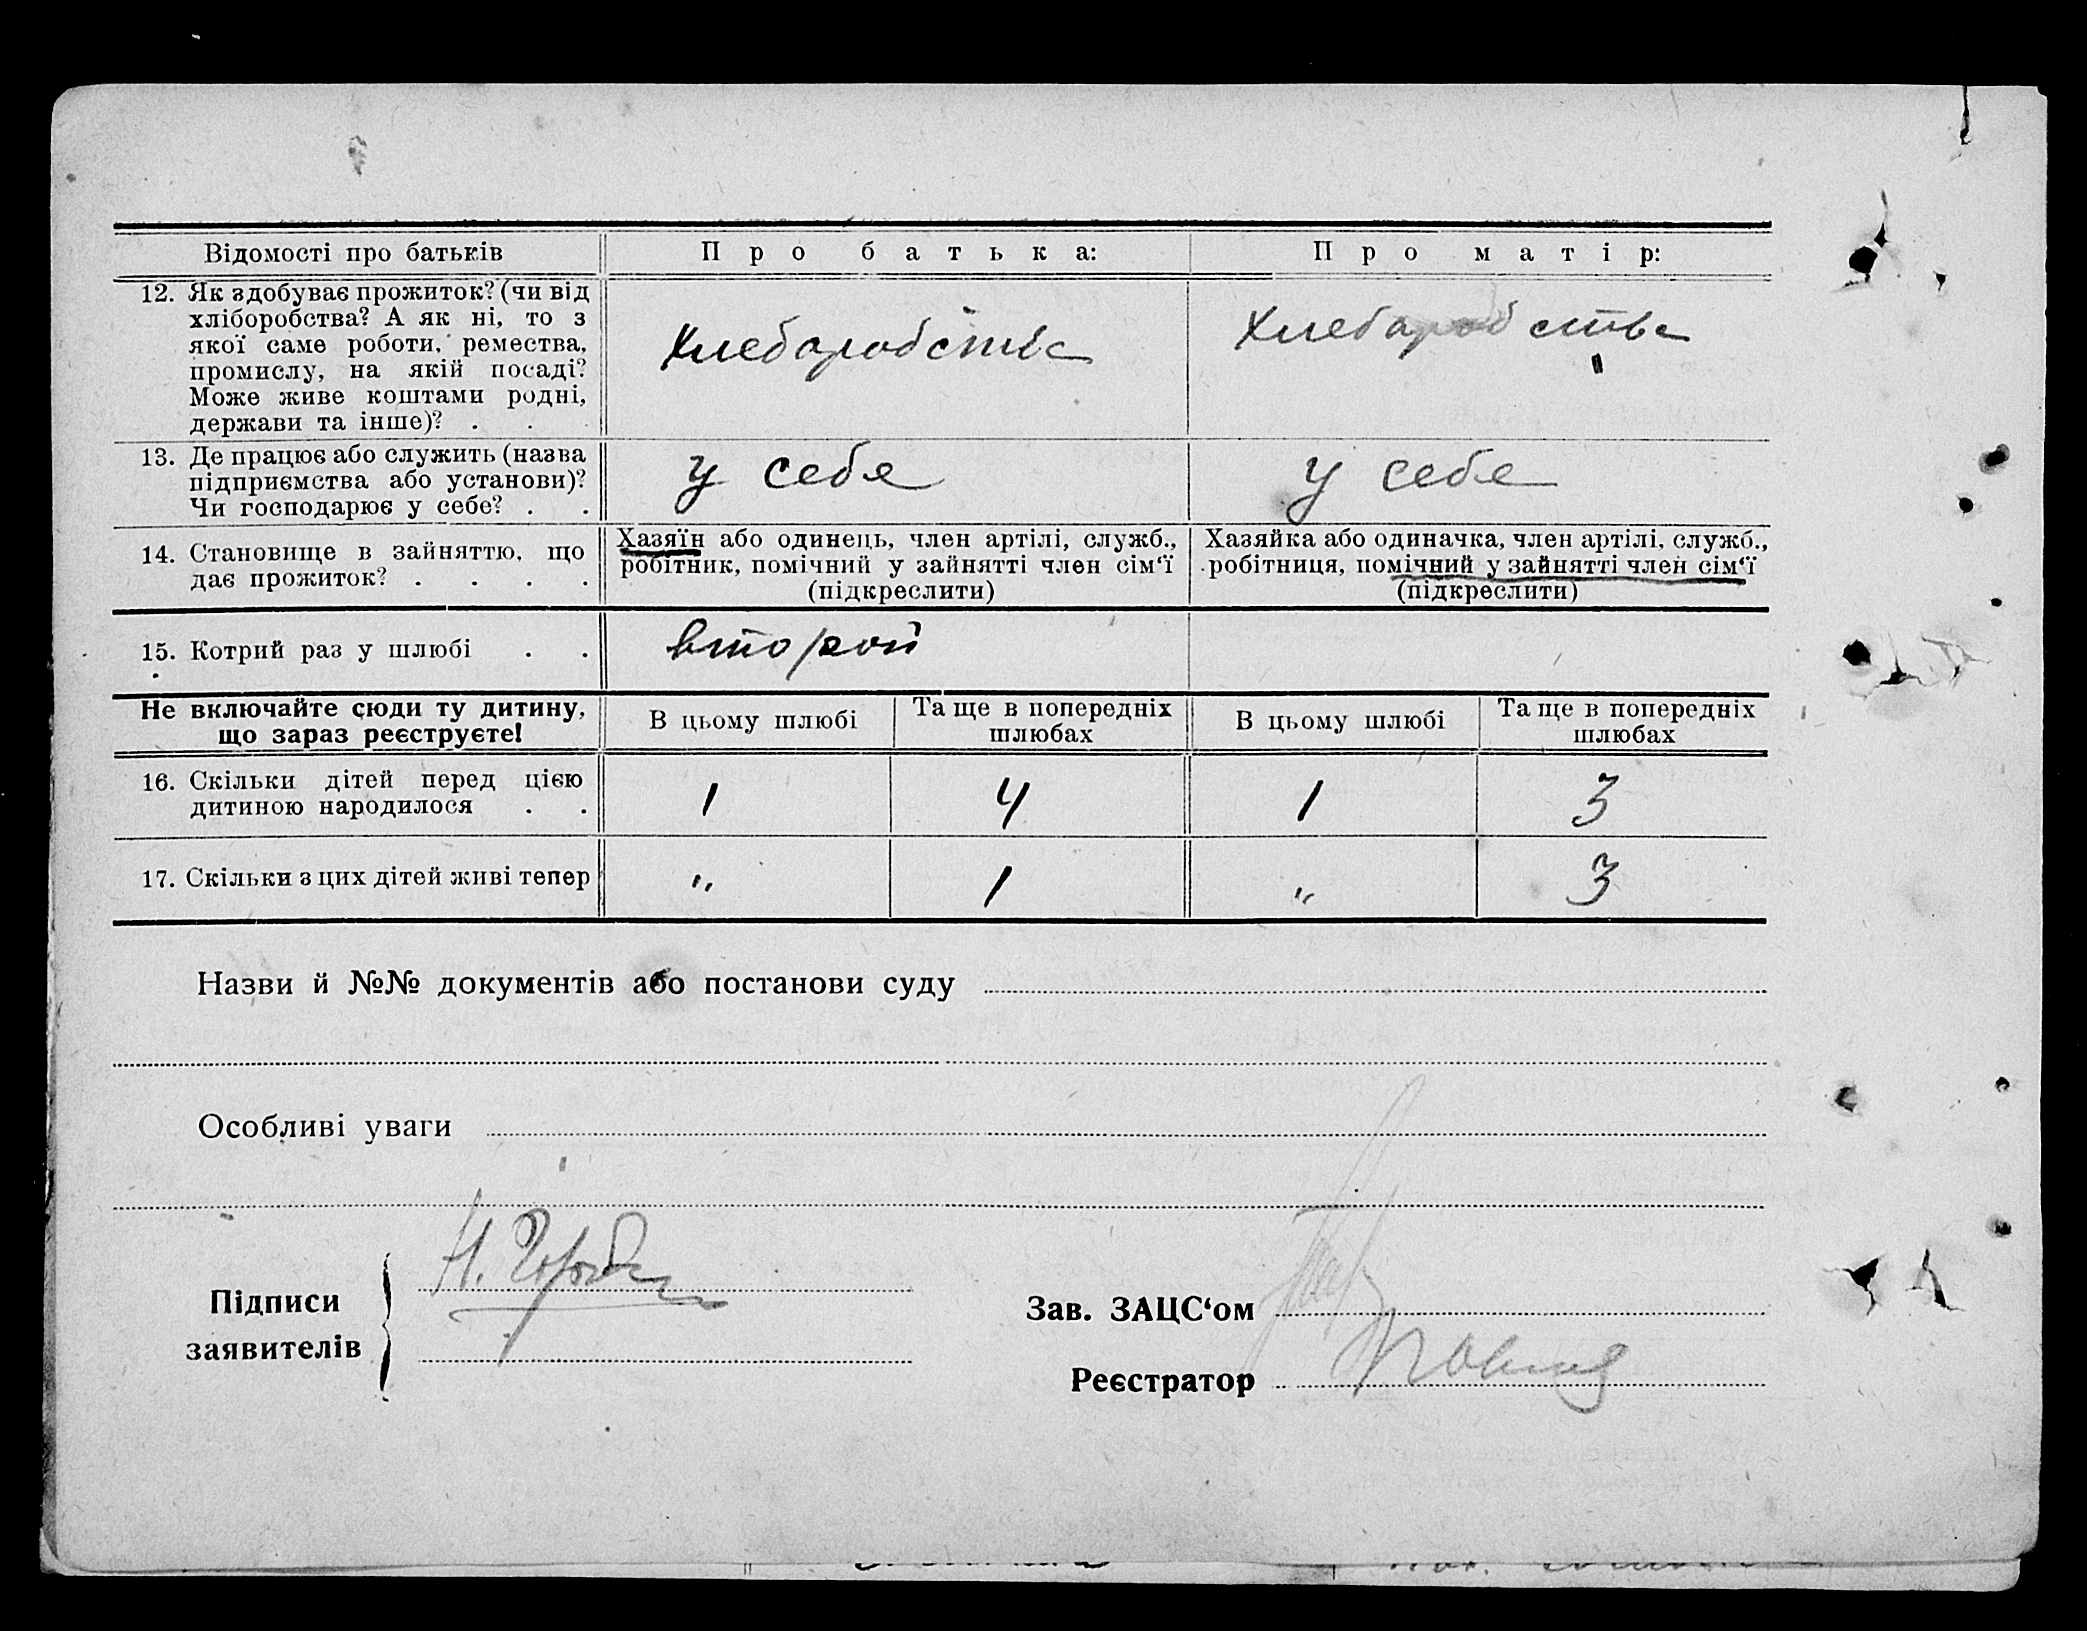 Відомості про батьків Про батька: Про матір:
12. Як здобуває прожиток? (чи від
хліборобства? А як ні, то з
якої саме роботи, ремества,
промислу, на якій посаді?
Може живе коштами родні,
держави та інше)? . .
Хлебаробства
Хлебаробства
13. Де працює або служить (назва
підприємства або установи)?
Чи господарює у себе? . .
у себя
у себе
14. Становище в зайняттю, що
дає прожиток? . . . .
Хазяїн або одинець, член артілі, служб.,
робітник, помічний у зайнятті член сім‘ї
(підкреслити)
Хазяйка або одиначка, член артілі, служб.,
робітниця, помічний у зайнятті член сім‘ї
(підкреслити)
15. Котрий раз у шлюбі . .
второй
Не включайте сюди ту дитину,
що зараз реєструєте!
В цьому шлюбі
Та ще в попередніх
шлюбах
В цьому шлюбі
Та ще в попередніх
шлюбах
16. Скільки дітей перед цією
дитиною народилося . .
1 4 1 3
17. Скільки з цих дітей живі тепер
" 1 " 3
Назви й №№ документів або постанови суду
Особливі уваги
Підписи
заявителів
Н.
Зав. ЗАЦС‘ом
Реєстратор